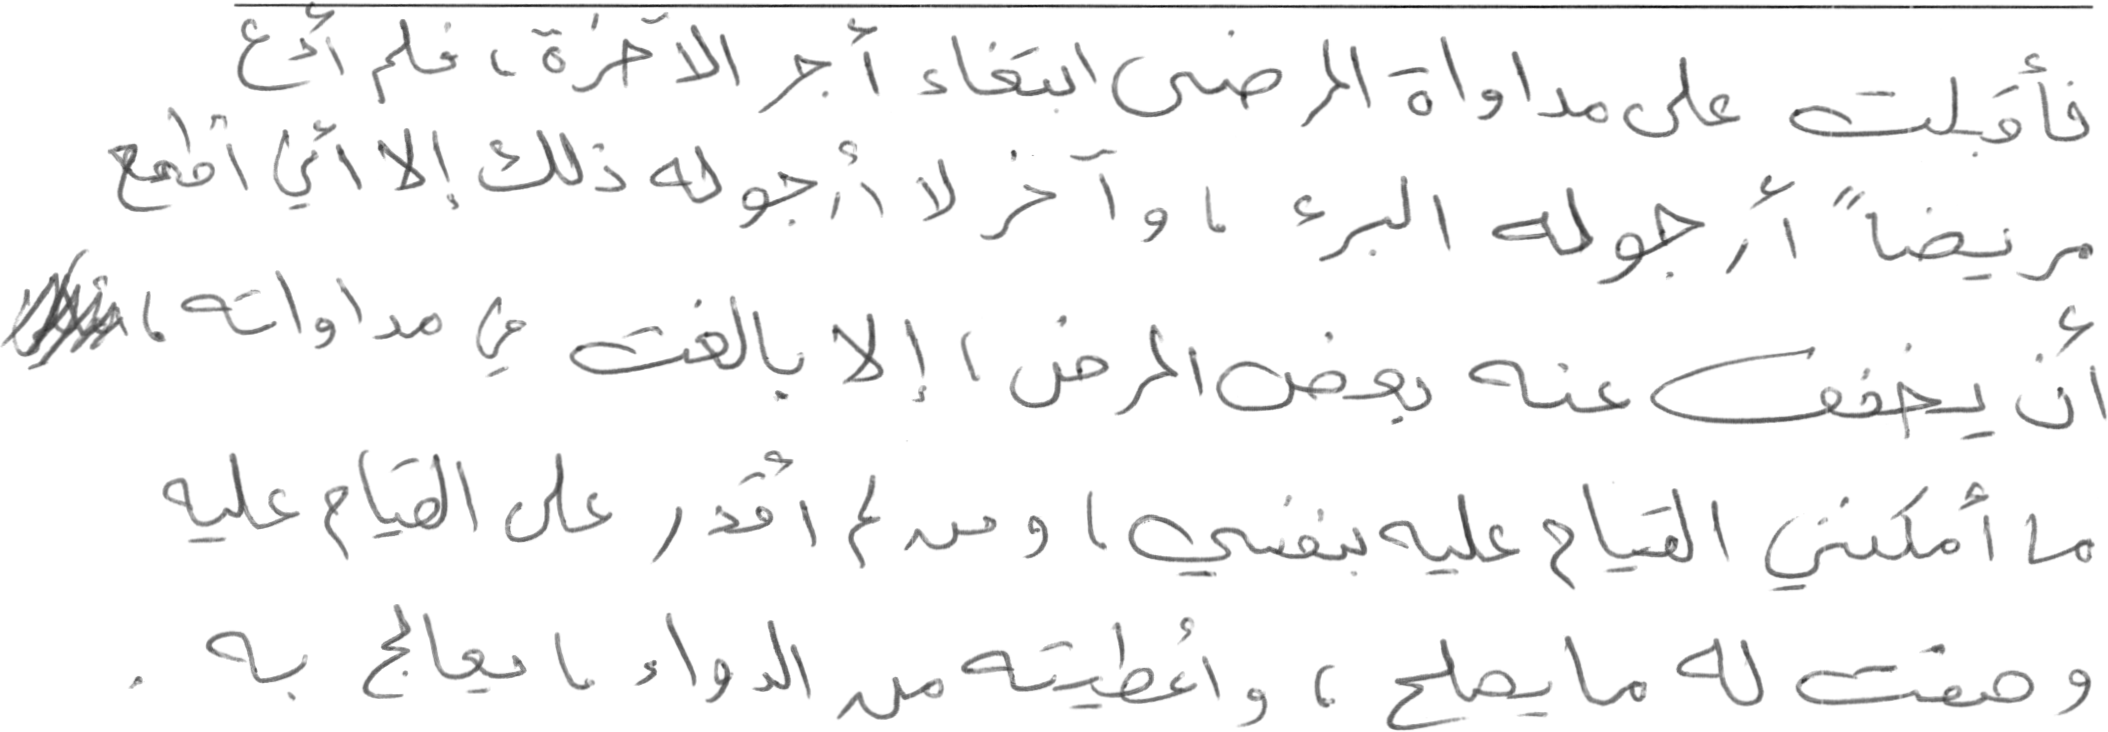 فأقبلت على مداواة المرضى ابتغاء أجر الآخرة، فلم أدع
مريضاً أرجو له البرء ، وآخر لا أرجو له ذلك إلا أني أطمع
أن يخفف عنه بعض المرض، إلا بالغت في مداواته ،
ما أمكنني القيام عليه بنفسي، ومن لم أقدر على القيام عليه
وصفت له ما يصلح ، وأعطيته من الدواء ما يعالج به .